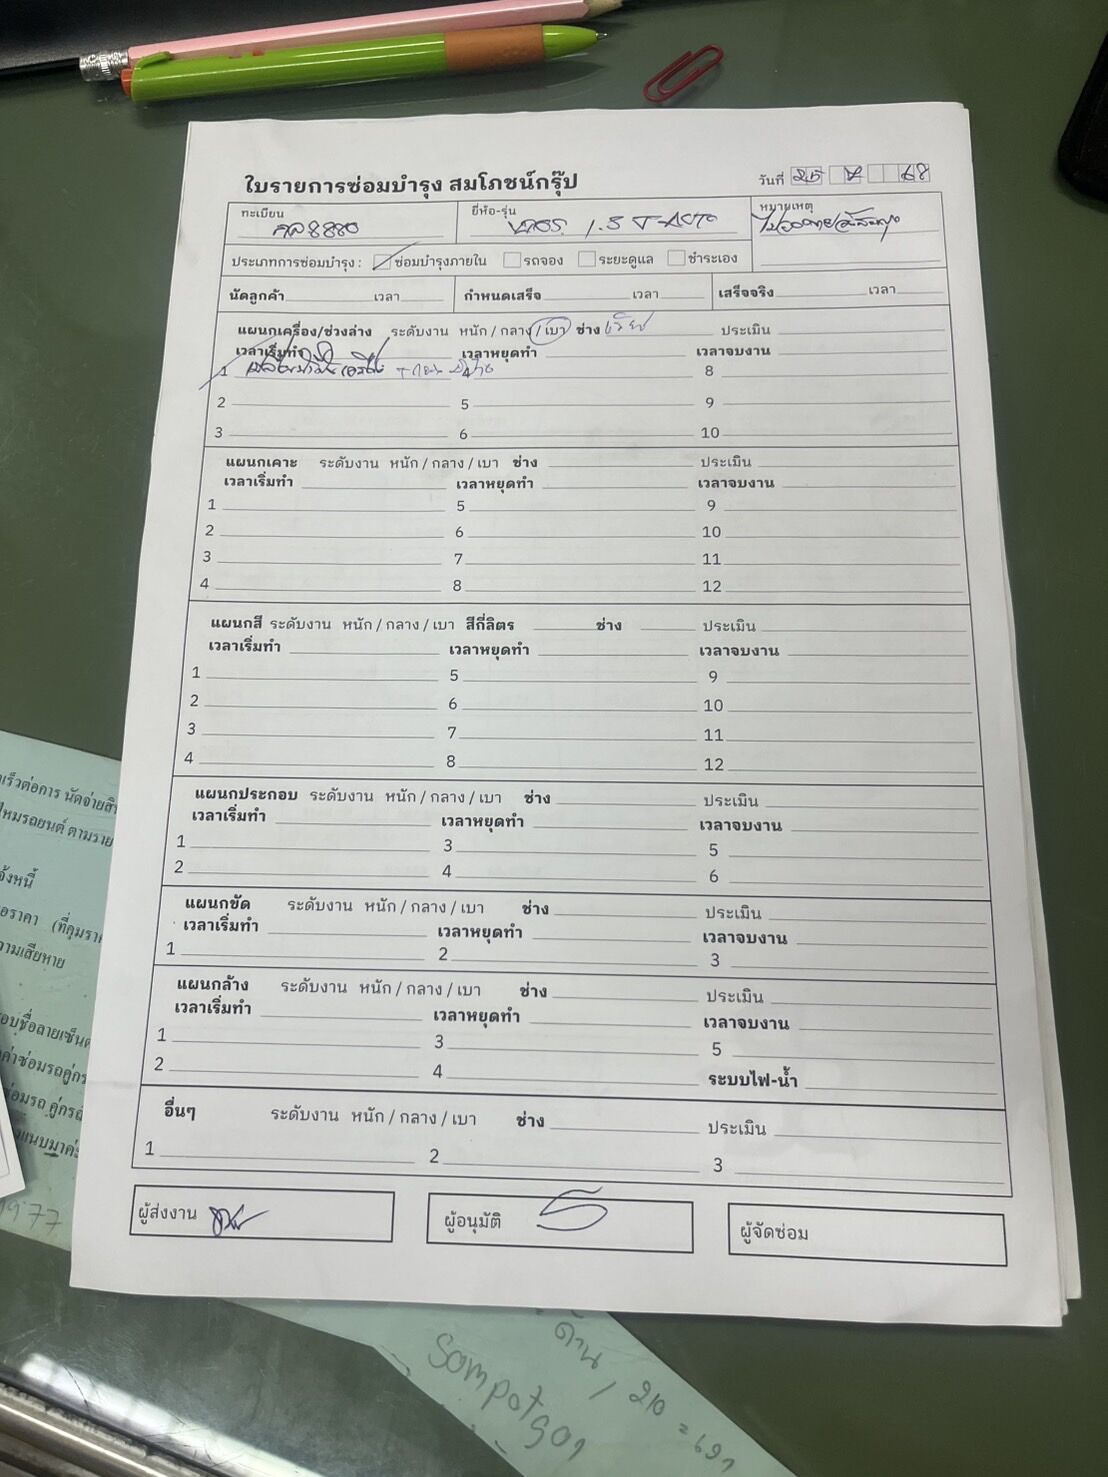 ใบรายการซ่อมบำรุง สมโภชน์กรุ๊ป
วันที่ 25 68
ทะเบียน 8880
ยี่ห้อ-รุ่น 1.5 T-AUTO
หมายเหตุ
ประเภทการซ่อมบำรุง : ซ่อมบำรุงภายใน รถจอง ระยะดูแล ชำระเอง
นัดลูกค้า เวลา กำหนดเสร็จ เวลา เสร็จจริง เวลา
แผนกเครื่อง/ช่วงล่าง ระดับงาน หนัก / กลาง / เบา ช่าง ประเมิน
เวลาเริ่มทำ เวลาหยุดทำ เวลาจบงาน
1 4 8
2 5 9
3 6 10
แผนกเคาะ ระดับงาน หนัก / กลาง / เบา ช่าง ประเมิน
เวลาเริ่มทำ เวลาหยุดทำ เวลาจบงาน
1 5 9
2 6 10
3 7 11
4 8 12
แผนกสี ระดับงาน หนัก / กลาง / เบา สีกี่ลิตร ช่าง ประเมิน
เวลาเริ่มทำ เวลาหยุดทำ เวลาจบงาน
1 5 9
2 6 10
3 7 11
4 8 12
แผนกประกอบ ระดับงาน หนัก / กลาง / เบา ช่าง ประเมิน
เวลาเริ่มทำ เวลาหยุดทำ เวลาจบงาน
1 3 5
2 4 6
แผนกขัด ระดับงาน หนัก / กลาง / เบา ช่าง ประเมิน
เวลาเริ่มทำ เวลาหยุดทำ เวลาจบงาน
1 2 3
แผนกล้าง ระดับงาน หนัก / กลาง / เบา ช่าง ประเมิน
เวลาเริ่มทำ เวลาหยุดทำ เวลาจบงาน
1 3 5
2 4 ระบบไฟ-น้ำ
อื่นๆ ระดับงาน หนัก / กลาง / เบา ช่าง ประเมิน
1 2 3
ผู้ส่งงาน ผู้อนุมัติ ผู้จัดซ่อม
เร็วต่อการ นัดจ่ายสิ
ไหมรถยนต์ ตามราย
จ้งหนี้
อราคา (ที่คุมรา
วามเสียหาย
อบชื่อลายเซ็น
ค่าซ่อมรถคู่กร
ซ่อมรถ คู่กรณ์
แนบมาค่
1977
ด้าน / 210 = 69
Sompotgon